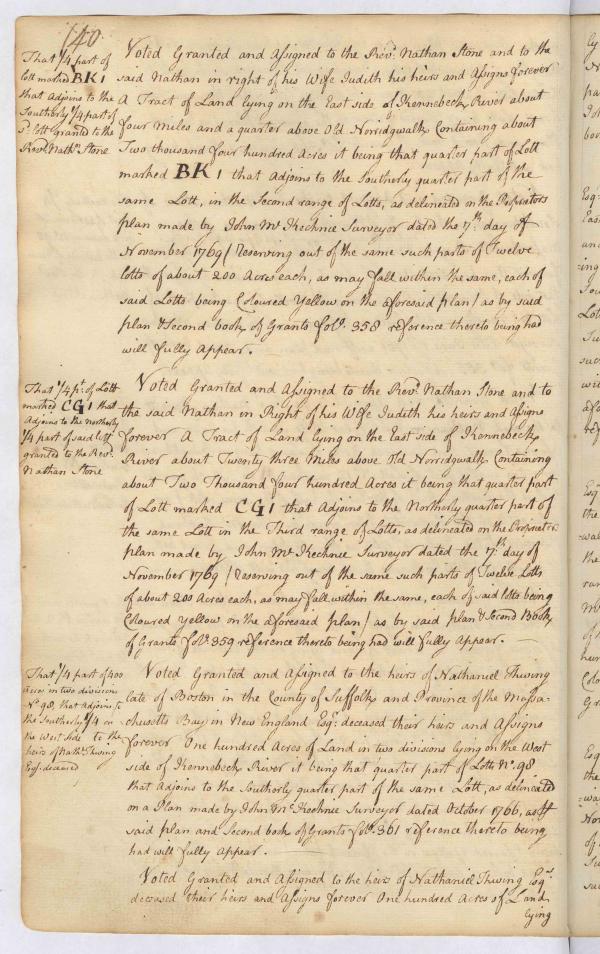 140
That 1/4 part of
lott marked BK 1
that Adjoins to the
Southerly 1/4 part of
sd. lott Granted to the
Revd. Nathn. Stone
Voted Granted and Assigned to the Revd. Nathan Stone and to the
said Nathan in right of his Wife Judith his heirs and Assigns forever
A Tract of Land lying on the East side of Kennebeck River about
four Miles and a quarter above Old Norridgwalk Containing about
Two thousand four hundred Acres it being that quarter part of Lott
marked BK 1 that Adjoins to the Southerly quarter part of the
same Lott, in the Second range of Lotts, as delineated on the Proprietors
plan made by John Mc. Kechnie Surveyor dated the 7th. day of
November 1769 / Reserving out of the same such parts of Twelve
lotts of about 200 Acres each, as may fall within the same, each of
said Lotts being Coloured Yellow on the aforesaid plan / as by said
plan & Second book of Grants folo. 358 reference thereto being had
will fully Appear.
That 1/4 pt. of Lott
marked CG 1 that
Adjoins to the Northerly
1/4 part of said lott
granted to the Revd.
Nathan Stone
Voted Granted and Assigned to the Revd. Nathan Stone and to
the said Nathan in Right of his Wife Judith his heirs and Assigns
forever A Tract of Land lying on the East side of Kennebeck
River about Twenty three Miles above Old Norridgwalk Containing
about Two Thousand four hundred Acres it being that quarter part
of Lott marked CG 1 that Adjoins to the Northerly quarter part of
the same Lott in the Third range of Lotts, as delineated on the Proprietors
plan made by John Mc. Kechnie Surveyor dated the 7th. day of
November 1769 / Reserving out of the same such parts of Twelve Lotts
of about 200 Acres each, as may fall within the same, each of said lotts being
Coloured Yellow on the aforesaid plan / as by said plan & Second Book
of Grants folo. 359 reference thereto being had will fully Appear.
That 1/4 part of 400
Acres in two divisions
No. 98, that Adjoins to
the Southerly 1/4 on
the West side to the
heirs of Nathl. Thwing
Esqr. deceased
Voted Granted and Assigned to the heirs of Nathaniel Thwing
late of Boston in the County of Suffolk and Province of the Massa-
chusetts Bay in New England Esqr. deceased their heirs and Assigns
forever One hundred Acres of Land in two divisions lying on the West
side of Kennebeck River it being that quarter part of Lotts No. 98
that Adjoins to the Southerly quarter part of the same Lott, as delineated
on a Plan made by John Mc. Kechnie Surveyor dated October 1766, as
said plan and Second book of Grants folo. 361 reference thereto being
had will fully Appear.
Voted Granted and Assigned to the heirs of Nathaniel Thwing Esqr.
deceased their heirs and Assigns forever One hundred Acres of Land
lying